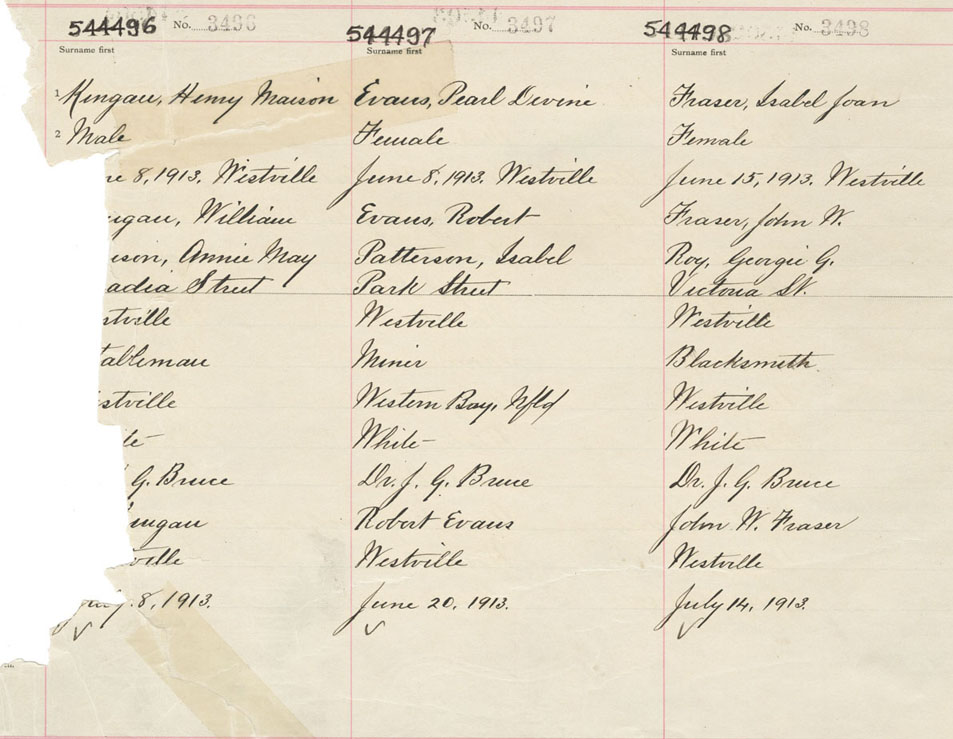 544496 No. 3496
Surname first
1 Mengau, Henry Maison
2 Male
ne 8, 1913. Westville
ugau, William
ison, Annie May
adia Street
stville
tableman
stville
te
G. Bruce
ungau
ville
July 8, 1913.
544497 No. 3497
Surname first
Evans, Pearl Devine
Female
June 8, 1913. Westville
Evans, Robert
Patterson, Isabel
Park Street
Westville
Miner
Western Bay, Nfld
White
Dr. J. G. Bruce
Robert Evans
Westville
June 20, 1913.
544498 No. 3498
Surname first
Fraser, Isabel Joan
Female
June 15, 1913. Westville
Fraser, John W.
Roy, Georgie G.
Victoria St.
Westville
Blacksmith
Westville
White
Dr. J. G. Bruce
John W. Fraser
Westville
July 14, 1913.